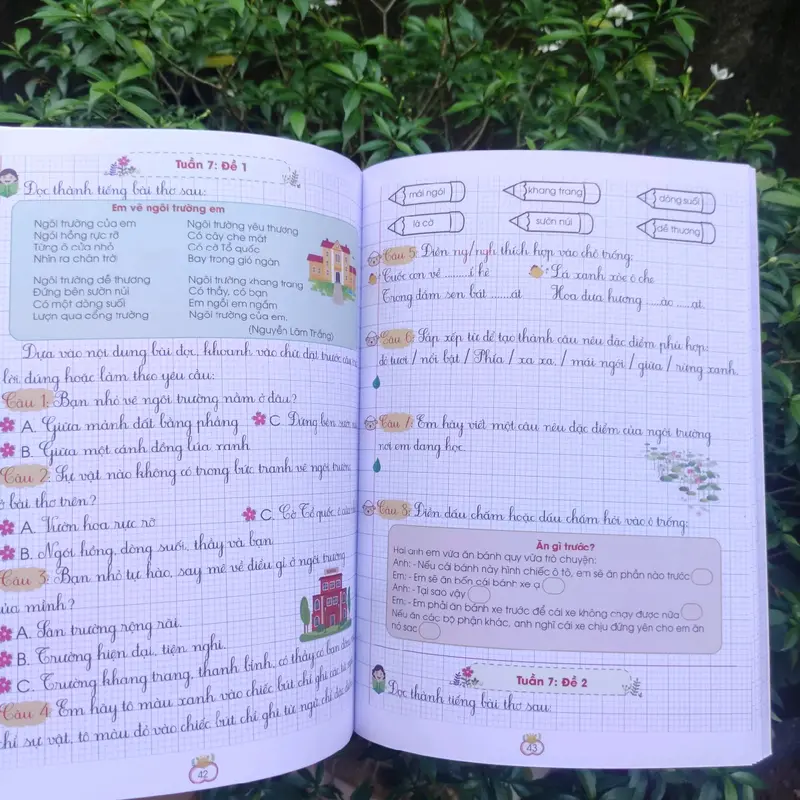 Tuần 7: Đề 1
Đọc thành tiếng bài thơ sau:
Em vẽ ngôi trường em
Ngôi trường của em
Ngói hồng rực rỡ
Từng ô cửa nhỏ
Nhìn ra chân trời
Ngôi trường dễ thương
Đứng bên sườn núi
Có một dòng suối
Lượn qua cổng trường
Ngôi trường yêu thương
Có cây che mát
Có cờ Tổ quốc
Bay trong gió ngàn
Ngôi trường khang trang
Có thầy, có bạn
Em ngồi em ngắm
Ngôi trường của em.
(Nguyễn Lãm Thắng)
Dựa vào nội dung bài đọc, khoanh vào chữ đặt trước câu trả
lời đúng hoặc làm theo yêu cầu:
Câu 1: Bạn nhỏ vẽ ngôi trường nằm ở đâu?
A. Giữa mảnh đất bằng phẳng
C. Đứng bên sườn núi
B. Giữa một cánh đồng lúa xanh
Câu 2: Sự vật nào không có trong bức tranh vẽ ngôi trường
ở bài thơ trên?
A. Vườn hoa rực rỡ
C. Cờ Tổ quốc,
B. Ngói hồng, dòng suối, thầy và bạn
Câu 3: Bạn nhỏ tự hào, say mê về điều gì ở ngôi trường
của mình?
A. Sân trường rộng rãi.
B. Trường hiện đại, tiện nghi.
C. Trường khang trang, thanh bình, có thầy có bạn
Câu 4: Em hãy tô màu xanh vào chiếc bút chì ghi các từ ngữ
chỉ sự vật, tô màu đỏ vào chiếc bút chì ghi từ ngữ chỉ đặc điểm
42
mái ngói
khang trang
dòng suối
lá cờ
sườn núi
dễ thương
Câu 5: Điền ng/ngh thích hợp vào chỗ trống:
Cuốc con về ........ỉ hè
Lá xanh xòe ô che
Trong đầm sen bát ........át
Hoa đưa hương ......ào ......ạt.
Câu 6: Sắp xếp từ để tạo thành câu nêu đặc điểm phù hợp:
đỏ tươi / nổi bật / Phía / xa xa, / mái ngói / giữa / rừng xanh.
Câu 7: Em hãy viết một câu nêu đặc điểm của ngôi trường
nơi em đang học.
Câu 8: Điền dấu chấm hoặc dấu chấm hỏi vào ô trống:
Ăn gì trước?
Hai anh em vừa ăn bánh quy vừa trò chuyện:
Anh: - Nếu cái bánh này hình chiếc ô tô, em sẽ ăn phần nào trước
Em: - Em sẽ ăn bốn cái bánh xe ạ
Anh: - Tại sao vậy
Em: - Em phải ăn bánh xe trước để cái xe không chạy được nữa
Nếu ăn các bộ phận khác, anh nghĩ cái xe chịu đứng yên cho em ăn
nó sao
Tuần 7: Đề 2
Đọc thành tiếng bài thơ sau:
43